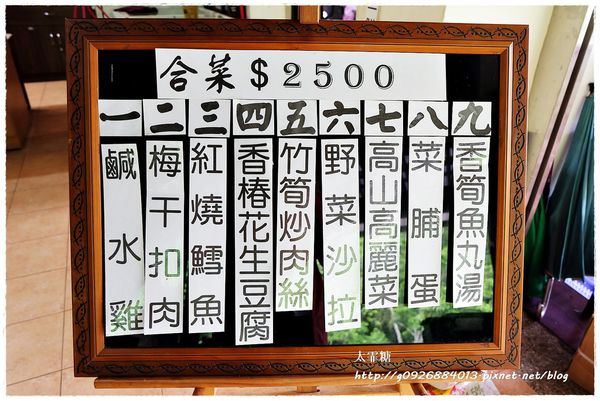 合菜$2500
一 鹹水雞
二 梅干扣肉
三 紅燒鱈魚
四 香椿花生豆腐
五 竹筍炒肉絲
六 野菜沙拉
七 高山高麗菜
八 菜脯蛋
九 香筍魚丸湯
太霏糖
http://q0926884013.pixnet.net/blog